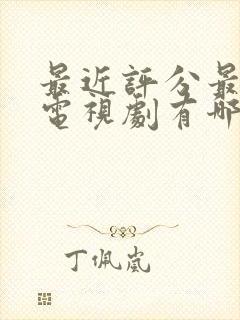 最近評分最
電視劇有哪
丁佩嵐